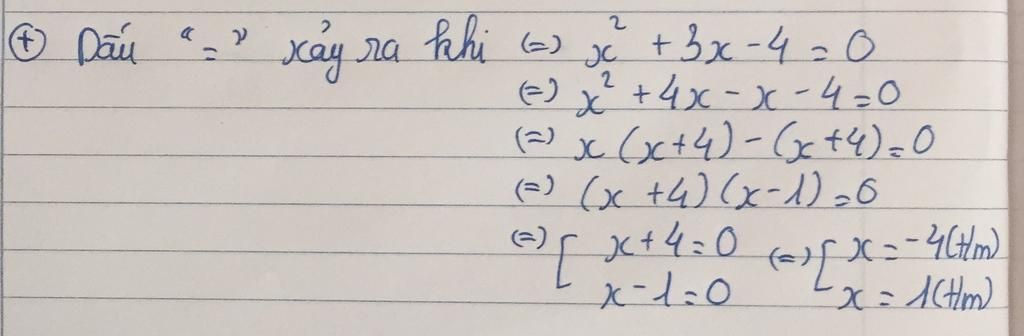 ⊕ Dấu "=" xảy ra khi (=) x² + 3x - 4 = 0
(=) x² + 4x - x - 4 = 0
(=) x (x+4) - (x+4) = 0
(=) (x + 4) (x - 1) = 0
(=) [ x + 4 = 0 (=) [ x = -4 (t/m)
x - 1 = 0 x = 1 (t/m)